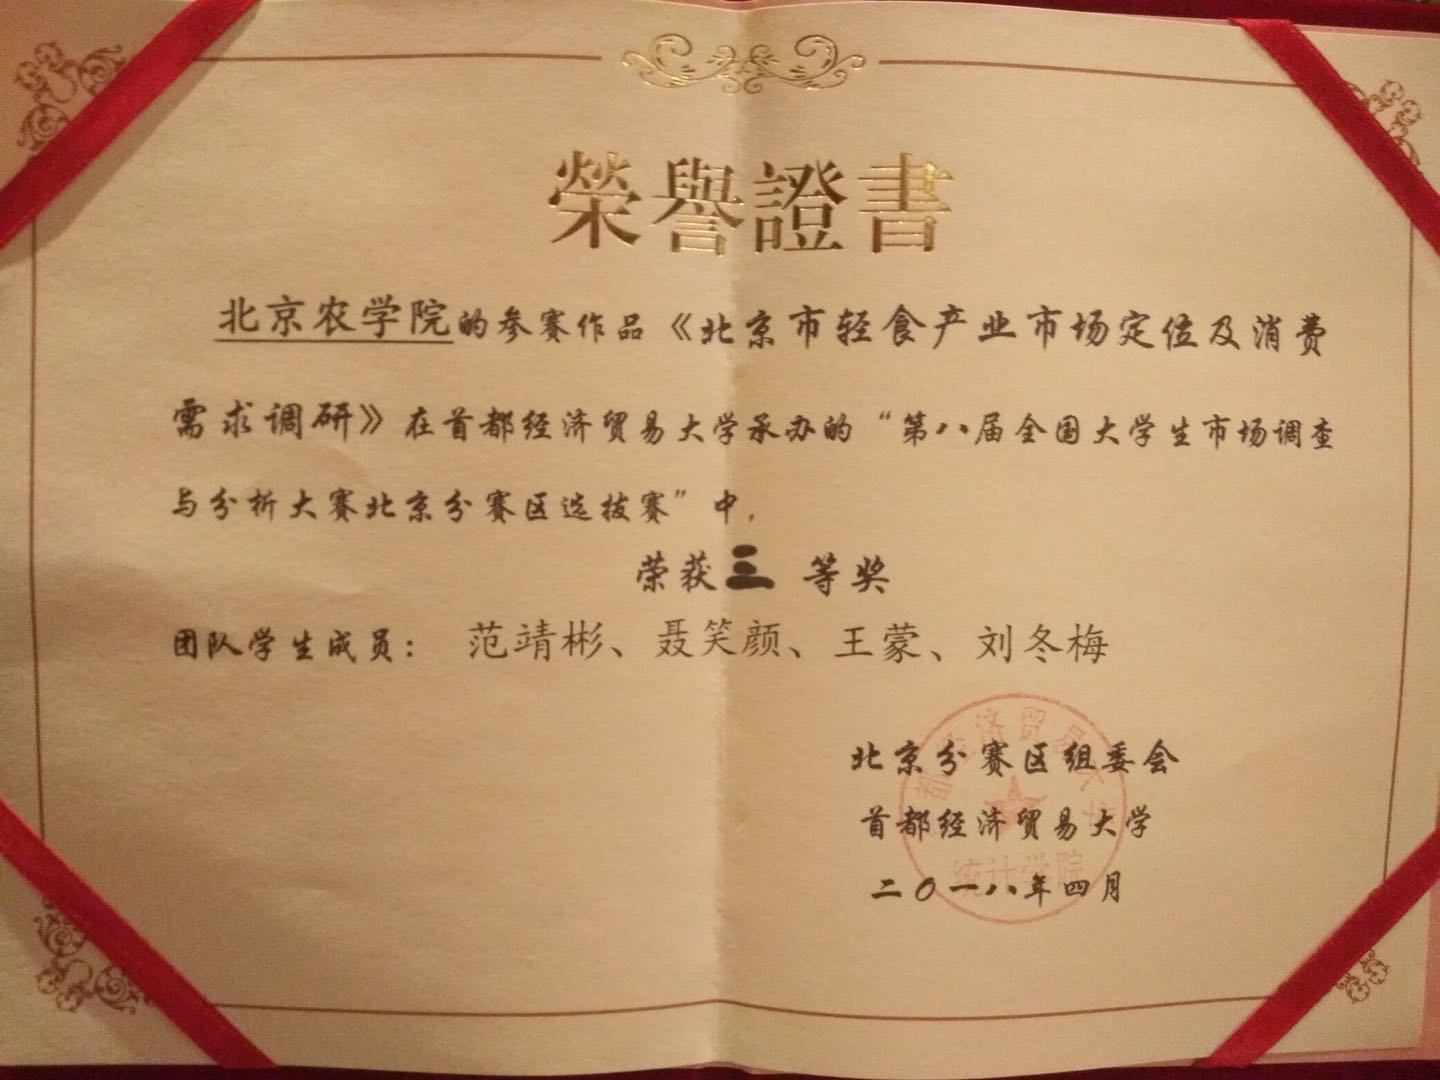 榮譽證書
北京农学院的参赛作品《北京市轻食产业市场定位及消费
需求调研》在首都经济贸易大学承办的“第八届全国大学生市场调查
与分析大赛北京分赛区选拔赛”中，
荣获三等奖
团队学生成员：范靖彬、聂笑颜、王蒙、刘冬梅
北京分赛区组委会
首都经济贸易大学
二〇一八年四月
首都经济贸易大学
统计学院